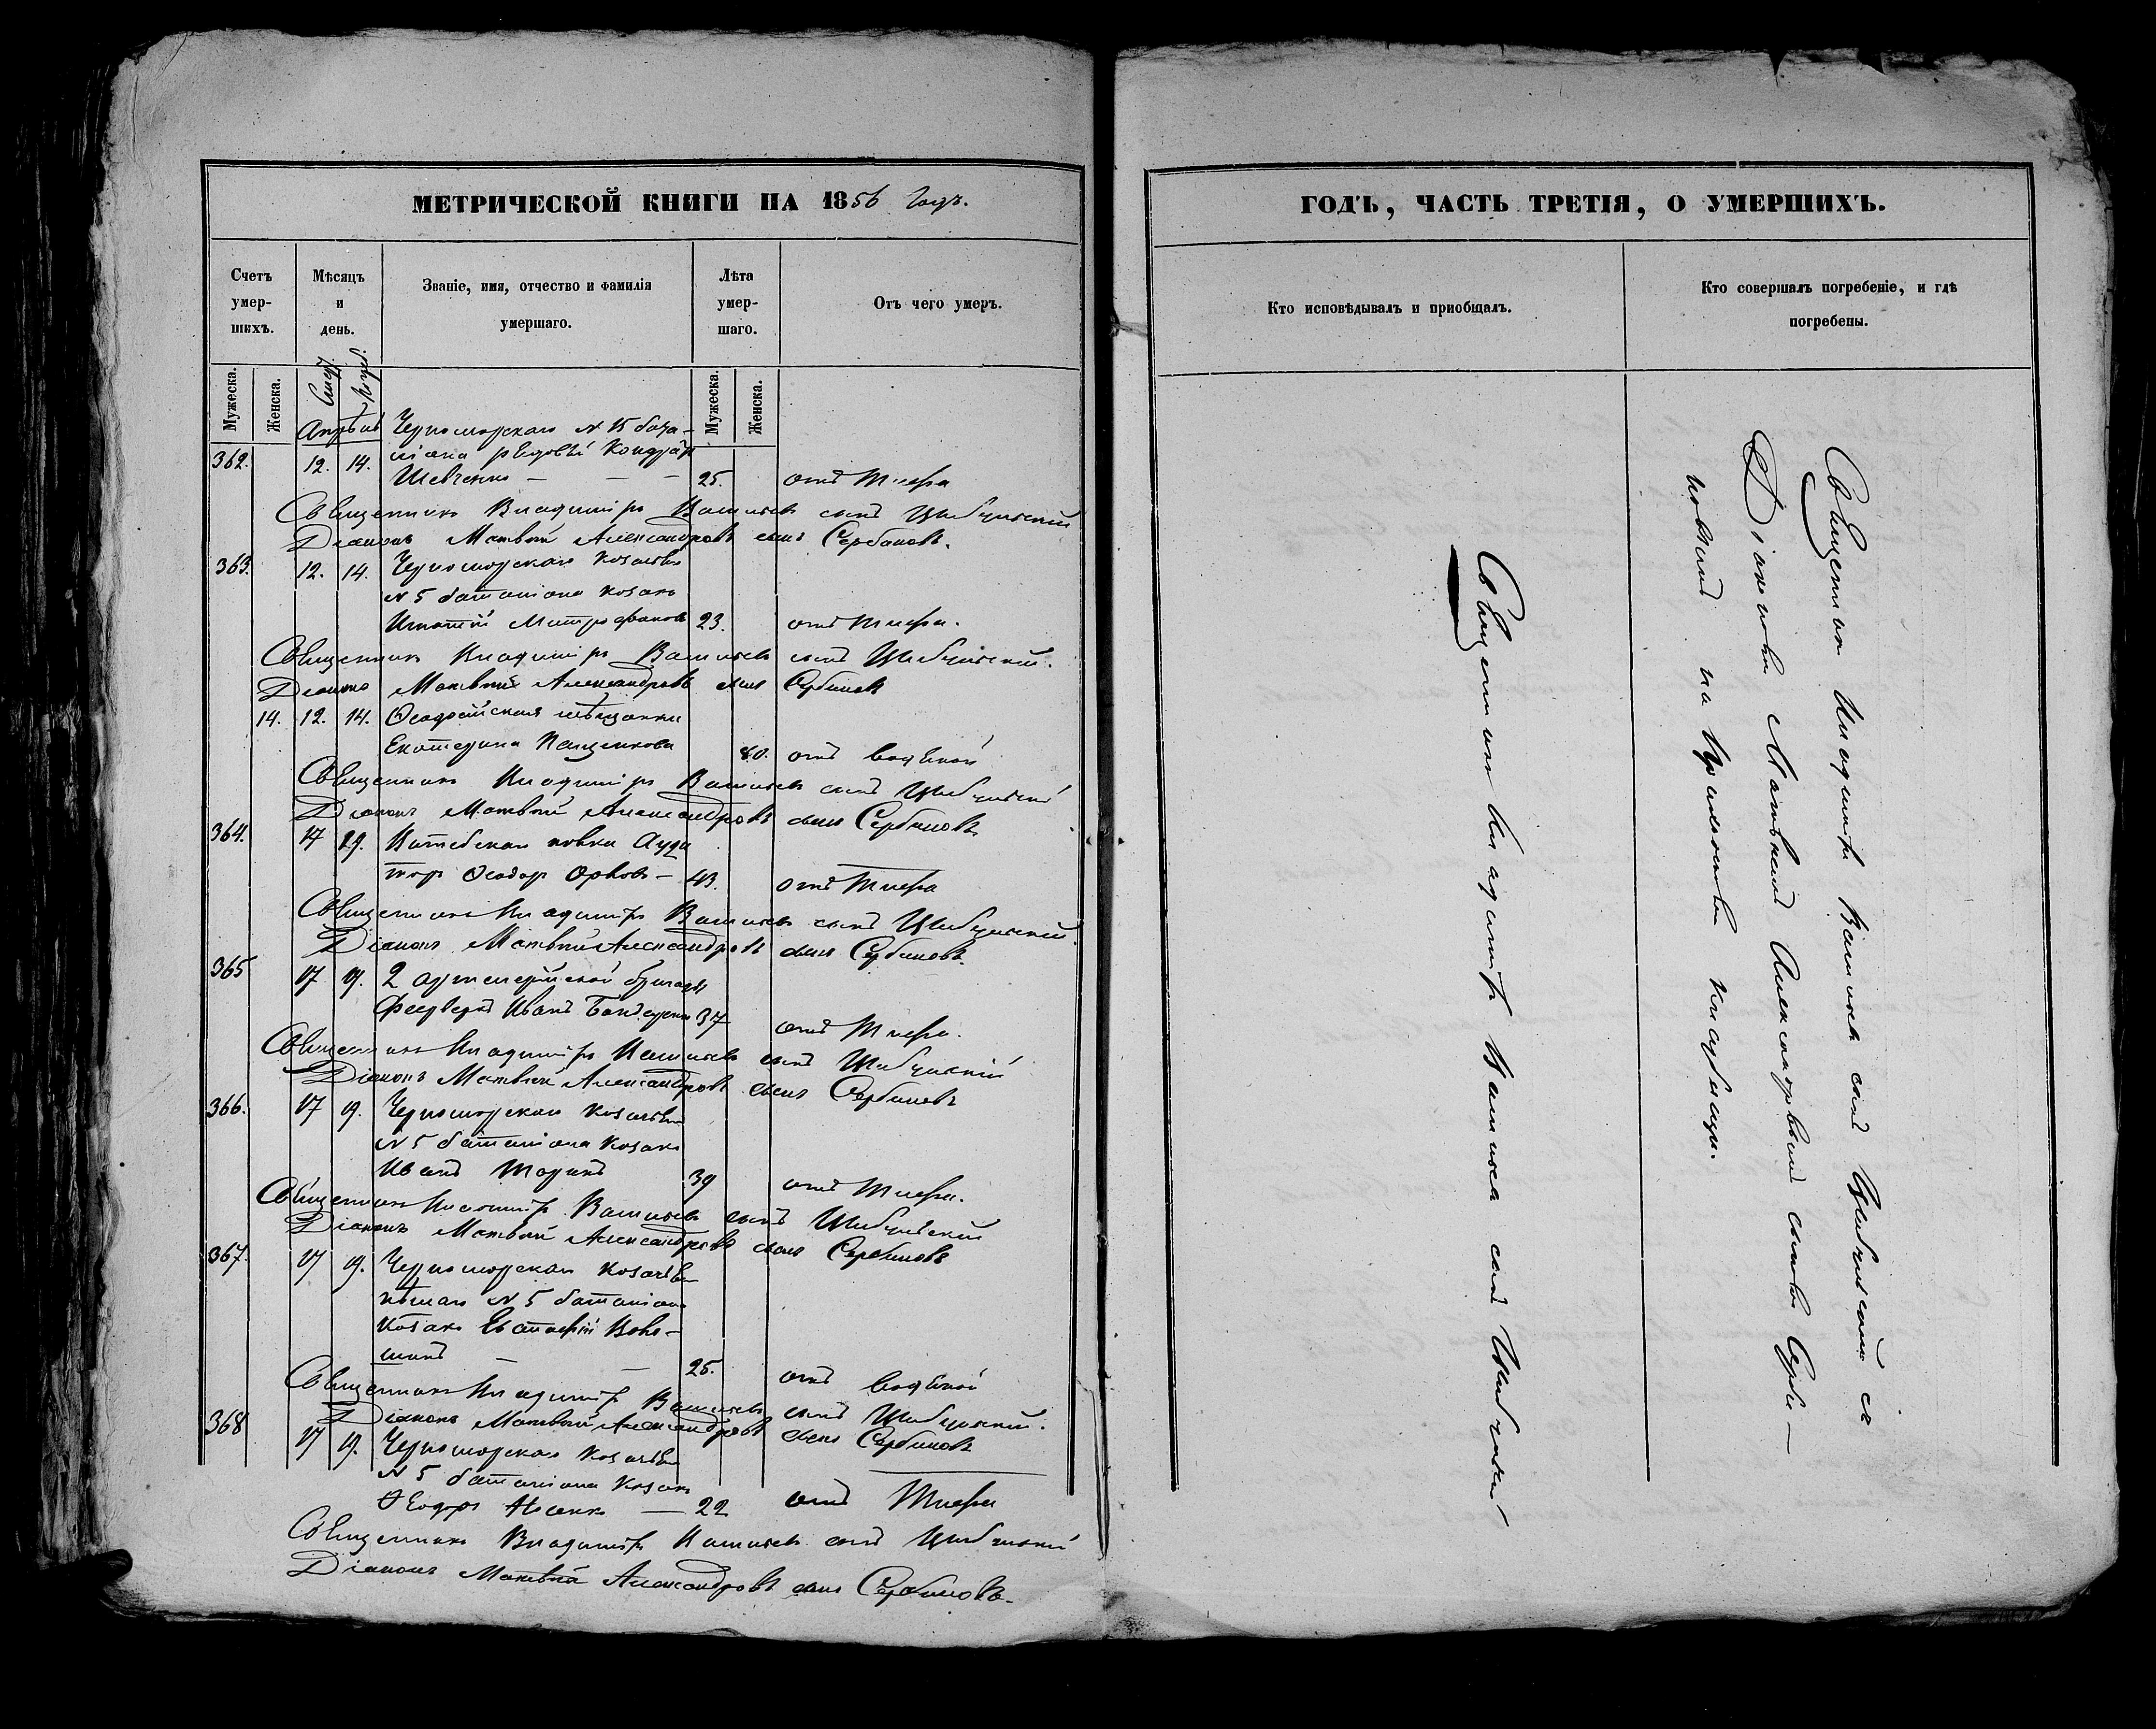 МЕТРИЧЕСКОЙ КНИГИ НА 1856 Годъ.
Счетъ умер- шихъ.
Мѣсяцъ и день.
Званіе, имя, отчество и фамилія умершаго.
Лѣта умер- шаго.
Отъ чего умеръ.
Мужеска.
Женска.
Смер.
Погр.
Мужеска.
Женска.
Апрѣль Черноморскаго № 15 бата-
ліона рядовый Кондратъ
362. 12. 14. Шевченко — — — 25. отъ тифа
Священникъ Владиміръ Васильевъ сынъ
Діаконъ Матвѣй Александровъ сынъ Сербиновъ.
363. 12. 14. Черноморскаго Козачьяго
№ 5 баталіона козакъ
Игнатій Митрофановъ 23. отъ тифа.
Священникъ Владиміръ Васильевъ сынъ
Діаконъ Матвѣй Александровъ сынъ Сербиновъ
14. 12. 14. Ѳеодосійская мѣщанка
Екатерина Пащенкова 80. отъ водяной
Священникъ Владиміръ Васильевъ сынъ
Діаконъ Матвѣй Александровъ сынъ Сербиновъ
364. 17 19. Витебскаго полка Ауди
торъ Ѳеодоръ Орловъ — 43. отъ тифа
Священникъ Владиміръ Васильевъ сынъ
Діаконъ Матвѣй Александровъ сынъ Сербиновъ.
365 17 19. 2 артилерійской бригады
Феерверкъ Иванъ Бондаренко 37 отъ тифа.
Священникъ Владиміръ Васильевъ сынъ
Діаконъ Матвѣй Александровъ сынъ Сербиновъ
366. 17 19. Черноморскаго Козачьяго
№ 5 баталіона Козакъ
Иванъ 39 отъ тифа.
Священникъ Владиміръ Васильевъ сынъ
Діаконъ Матвѣй Александровъ сынъ Сербиновъ
367. 17 19. Черноморскаго Козачьяго
пѣшаго № 5 баталіона
Козакъ Евстафій
— — 25. отъ водяной
Священникъ Владиміръ Васильевъ сынъ
Діаконъ Матвѣй Александровъ сынъ Сербиновъ
368 17 19. Черноморскаго Козачьяго
№ 5 баталіона Козакъ
Ѳеодоръ — 22 отъ тифа
Священникъ Владиміръ Васильевъ сынъ
Діаконъ Матвѣй Александровъ сынъ Сербиновъ.
ГОДЪ, ЧАСТЬ ТРЕТІЯ, О УМЕРШИХЪ.
Кто исповѣдывалъ и пріобщалъ.
Кто совершалъ погребеніе, и гдѣ погребены.
Священникъ Владиміръ Васильевъ сынъ
Священникъ Владиміръ Васильевъ сынъ съ
Діакономъ Матвѣемъ Александровымъ сыномъ Серби—
новымъ на кладбищѣ.